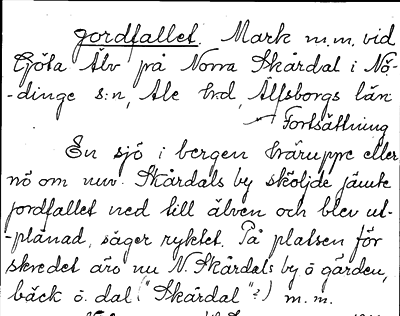 Jordfallet. Mark m.m. vid
Göta Älv på Norra Skårdal i Nö-
-dinge s:n, Ale hrd, Älfsborgs län
Fortsättning
En sjö i bergen häruppe eller
nö om nuv. Skårdals by sköljde jämte
jordfallet ned till älven och blev ut-
-plånad, säger ryktet. På platsen för
skredet äro nu N. Skårdals by ö gården,
bäck ö. dal ("Skårdal"?) m.m.